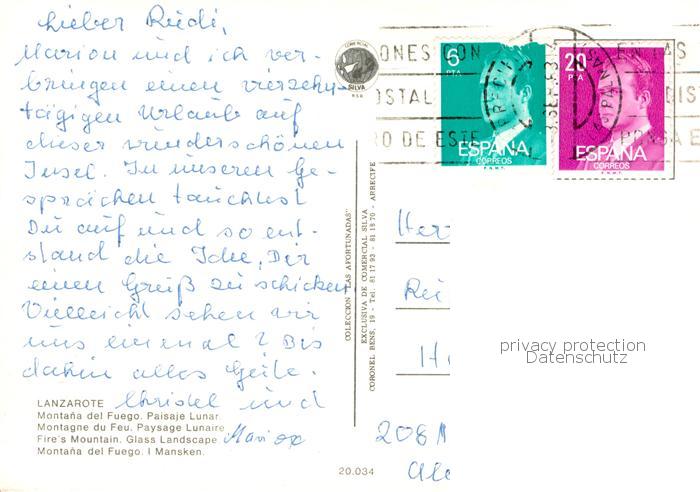 Lieber Rüdi,
Marion und ich ver-
bringen einen vierzehn-
tägigen Urlaub auf
dieser wunderschönen
Insel. In unseren Ge-
sprächen tauchst
Du auf und so ent-
stand die Idee, Dir
einen Gruß zu schicken.
Vielleicht sehen wir
uns einmal? Bis
dahin alles Gute.
und
Marion
LANZAROTE
Montaña del Fuego. Paisaje Lunar.
Montagne du Feu. Paysage Lunaire.
Fire's Mountain. Glass Landscape.
Montaña del Fuego. I Mansken.
20.034
COLECCION "LAS AFORTUNADAS"
EXCLUSIVA DE COMERCIAL SILVA
CORONEL BENS, 19 - Tel. 81 17 93 - 81 18 70 - ARRECIFE
COMERCIAL
SILVA
6
PTA
ESPAÑA
CORREOS
F.N.M.T.
20
PTA
ESPAÑA
CORREOS
F.N.M.T.
ONES CON
OSTAL
RO DE ESTE
Her
Rü
H
208
privacy protection
Datenschutz